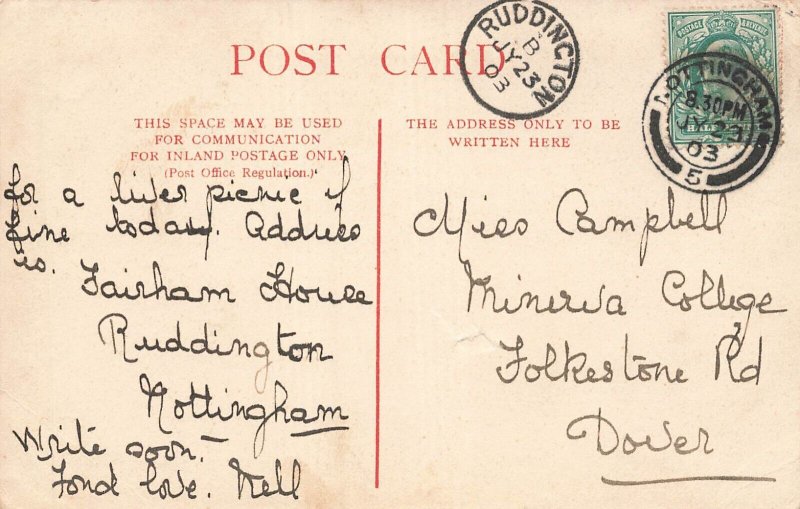 POST CARD
THIS SPACE MAY BE USED
FOR COMMUNICATION
FOR INLAND POSTAGE ONLY
(Post Office Regulation.)
for a river picnic if
fine today. Address
is. Fairham House
Ruddington
Nottingham
Write soon.
Fond love. Nell
THE ADDRESS ONLY TO BE
WRITTEN HERE
Miss Campbell
Minerva College
Folkestone Rd
Dover
RUDDINGTON
B
JY 23
03
POSTAGE & REVENUE
HALF
NOTTINGHAM
8.30PM
JY 23
03
5